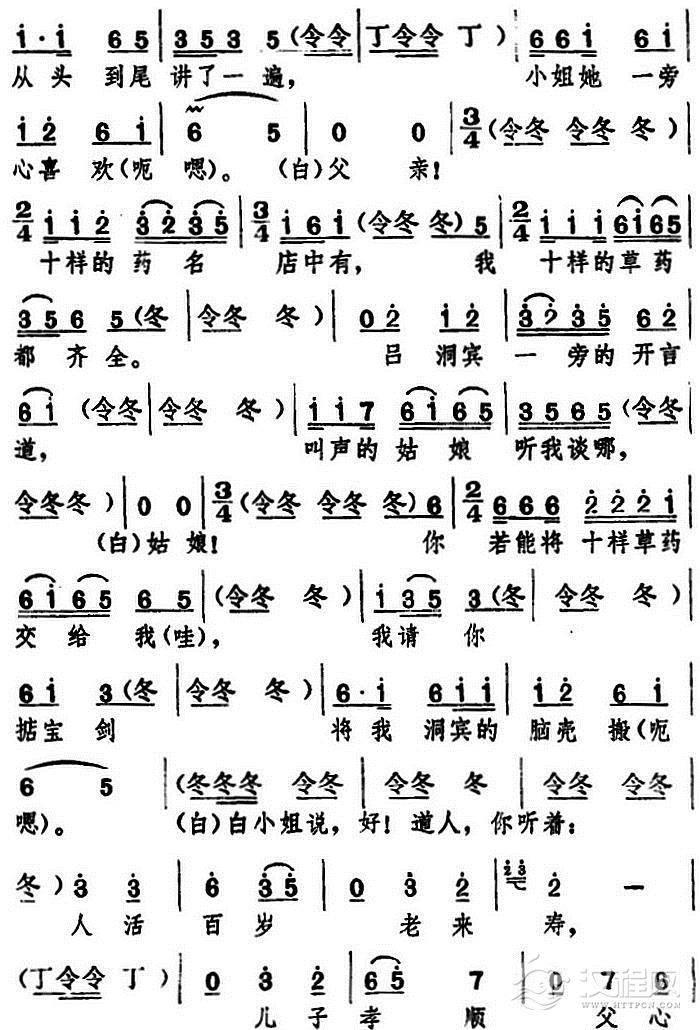 i·i 65 | 353 5(令令 | 丁令令 丁) | 66i 6i |
从头 到尾 讲了一遍， 小姐她 一旁
i2 6i | 6 5 | 0 0 | 3/4 (令冬 令冬 冬) |
心喜 欢(呃 嗯)。 (白)父 亲!
2/4 ii2 3235 | 3/4 i6i (令冬 冬) 5 | 2/4 iii 6i65 |
十样的 药 名 店中有， 我 十样的草药
356 5(冬 | 令冬 冬) | 02 i2 | 3235 |
都 齐 全。 吕 洞宾 一 旁的 开言
6i (令冬 | 令冬 冬) | ii7 6i65 | 3565 (令冬 |
道， 叫声的 姑 娘 听我谈哪，
令冬冬) | 0 0 | 3/4 (令冬 令冬 冬) 6 | 2/4 666 222i |
(白)姑 娘! 你 若能将 十样草药
6i65 65 | (令冬 冬) | i35 3(冬 | 令冬 冬) |
交 给 我(哇)， 我请 你
6i 3(冬 | 令冬 冬) | 6·i 6ii | i2 6i |
掂宝 剑 将我 洞宾的 脑壳 搬(呃
6 5 | (冬冬冬 令冬 | 令冬 冬 | 令冬 令冬 |
嗯)。 (白)白小姐说，好! 道人，你听着：
冬) 3 3 | 6 35 | 0 3 2 | 23 2 — |
人 活 百 岁 老 来 寿，
(丁令令 丁) | 0 3 2 | 65 7 | 0 7 6 |
儿 子 孝 顺 父 心
汉程网
WWW.HTTPCN.COM